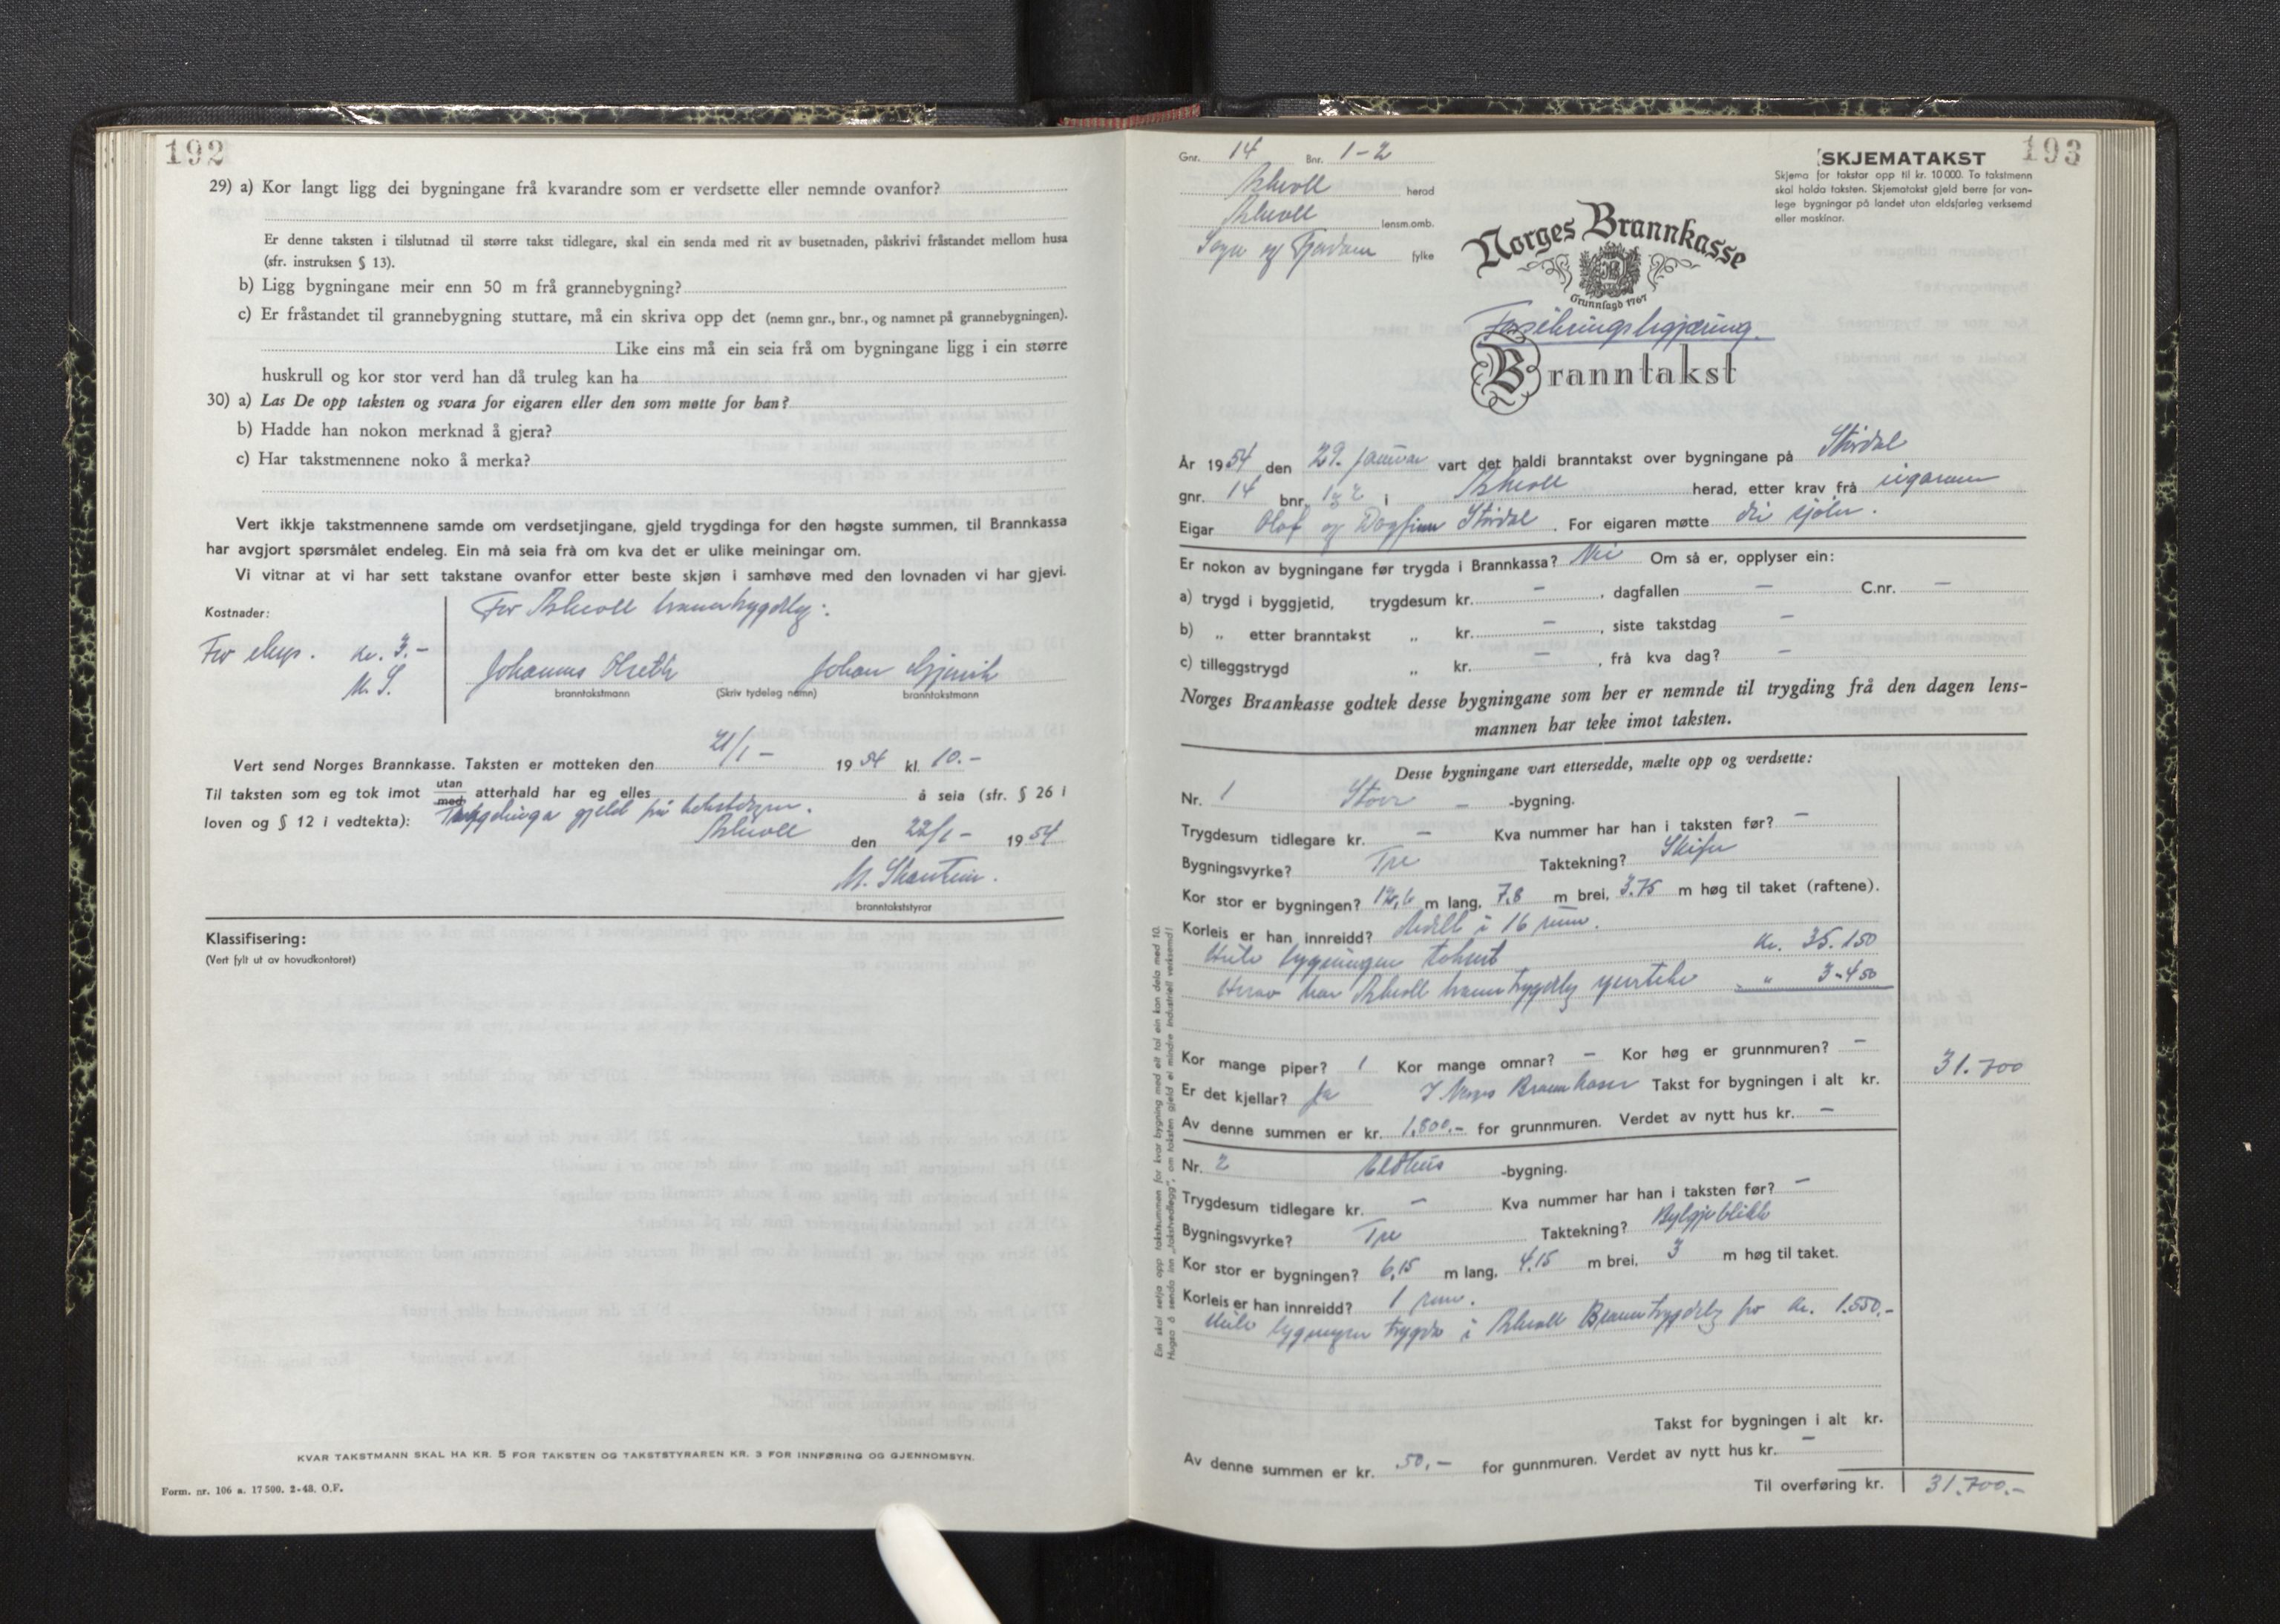 192
29) a) Kor langt ligg dei bygningane frå kvarandre som er verdsette eller nemnde ovanfor?
Er denne taksten i tilslutnad til større takst tidlegare, skal ein senda med rit av busetnaden, påskrivi fråstandet mellom husa
(sfr. instruksen § 13).
b) Ligg bygningane meir enn 50 m frå grannebygning?
c) Er fråstandet til grannebygning stuttare, må ein skriva opp det (nemn gnr., bnr., og namnet på grannebygningen).
Like eins må ein seia frå om bygningane ligg i ein større
huskrull og kor stor verd han då truleg kan ha
30) a) Las De opp taksten og svara for eigaren eller den som møtte for han?
b) Hadde han nokon merknad å gjera?
c) Har takstmennene noko å merka?
Vert ikkje takstmennene samde om verdsetjingane, gjeld trygdinga for den høgste summen, til Brannkassa
har avgjort spørsmålet endeleg. Ein må seia frå om kva det er ulike meiningar om.
Vi vitnar at vi har sett takstane ovanfor etter beste skjøn i samhøve med den lovnaden vi har gjevi.
Kostnader:
For Askvoll branntrygdelag:
For eksp. kr. 3.-
M. S.
Johannes Johan
branntakstmann (Skriv tydeleg namn) branntakstmann
Vert send Norges Brannkasse. Taksten er motteken den 21/1 - 1954 kl. 10.-
Til taksten som eg tok imot utan med atterhald har eg elles å seia (sfr. § 26 i
loven og § 12 i vedtekta): Trygdinga gjeld frå takstdagen.
Askvoll den 22/1 - 1954
M.
branntakststyrar
Klassifisering:
(Vert fylt ut av hovudkontoret)
KVAR TAKSTMANN SKAL HA KR. 5 FOR TAKSTEN OG TAKSTSTYRAREN KR. 3 FOR INNFØRING OG GJENNOMSYN.
Form. nr. 106 a. 17 500. 2-48. O.F.
193
Gnr. 14 Bnr. 1-2
Askvoll herad
Askvoll lensm.omb.
Sogn og Fjordane fylke
SKJEMATAKST
Skjema for takstar opp til kr. 10 000. To takstmenn
skal halda taksten. Skjematakst gjeld berre for van-
lege bygningar på landet utan eldsfarleg verksemd
eller maskinar.
Norges Brannkasse
Grunnlagd 1767
Forsikringsbegjæring.
Branntakst
År 1954 den 29. januar vart det haldi branntakst over bygningane på Stordal
gnr. 14 bnr. 1 og 2 i Askvoll herad, etter krav frå eigarane
Eigar Olaf og Dagfinn Stordal. For eigaren møtte dei sjølv.
Er nokon av bygningane før trygda i Brannkassa? Nei Om så er, opplyser ein:
a) trygd i byggjetid, trygdesum kr. - , dagfallen - C.nr. -
b) „ etter branntakst „ kr. - , siste takstdag -
c) tilleggstrygd „ kr. - , frå kva dag? -
Norges Brannkasse godtek desse bygningane som her er nemnde til trygding frå den dagen lens-
mannen har teke imot taksten.
Desse bygningane vart ettersedde, mælte opp og verdsette:
Nr. 1 Stove - -bygning.
Trygdesum tidlegare kr. - Kva nummer har han i taksten før? -
Bygningsvyrke? Tre Taktekning? Skifer
Kor stor er bygningen? m lang, 7,8 m brei, 3.75 m høg til taket (raftene).
Korleis er han innreidd? Avdelt i 16 rum.
Heile bygningen taksert kr. 35.150
Herav har Askvoll branntrygdelag yverteke " 3.450
Kor mange piper? 1 Kor mange omnar? - Kor høg er grunnmuren? -
Er det kjellar? Ja I Norges Brannkasse Takst for bygningen i alt kr. 31.700
Av denne summen er kr. 1.800.- for grunnmuren. Verdet av nytt hus kr. -
Nr. 2 Eldhus -bygning.
Trygdesum tidlegare kr. - Kva nummer har han i taksten før? -
Bygningsvyrke? Tre Taktekning? Bylgjeblikk
Kor stor er bygningen? 6,15 m lang, 4,15 m brei, 3 m høg til taket.
Korleis er han innreidd? 1 rum.
Heile bygningen trygda i Askvoll Branntrygdelag for kr. 1.550.-
Takst for bygningen i alt kr.
Av denne summen er kr. 50.- for gunnmuren. Verdet av nytt hus kr. -
Til overføring kr. 31.700.-
Ein skal setja opp takstsummen for kvar bygning med eit tal ein kan dela med 10.
Hugsa å senda inn „takstvedlegg", om taksten gjeld ei mindre industriell verksemd!